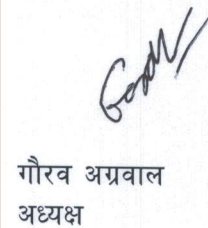 गौरव अग्रवाल
अध्यक्ष